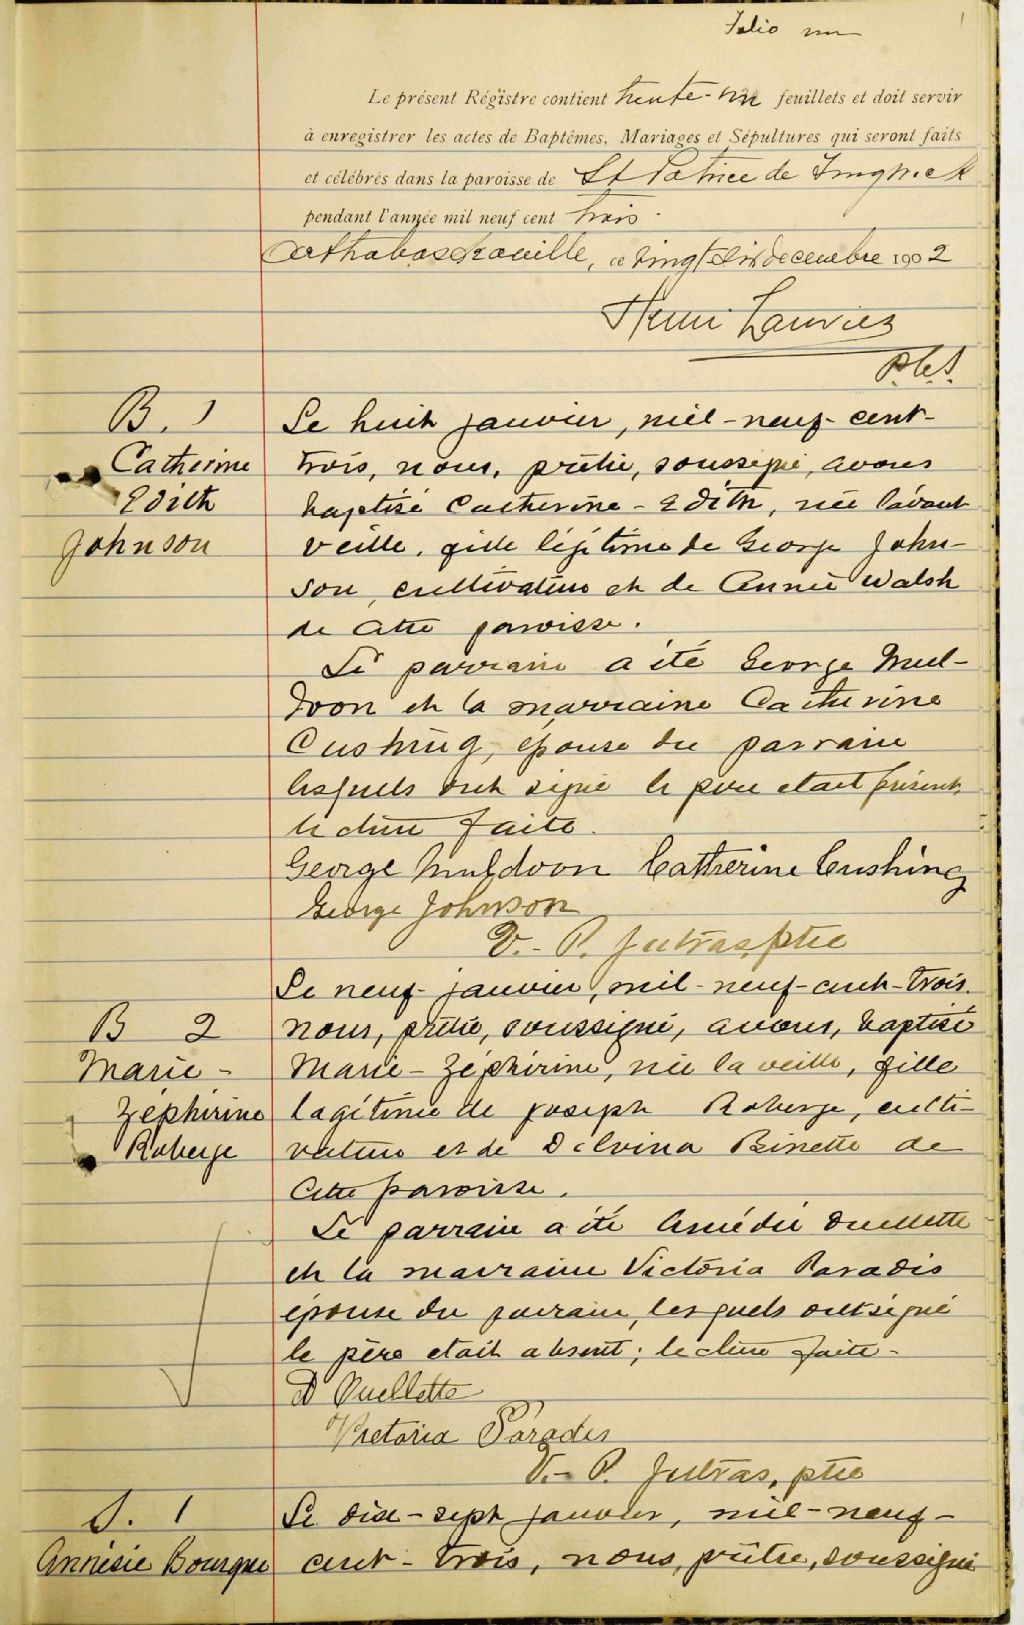 Folio un
Le présent Régistre contient trente-un feuillets et doit servir
à enregistrer les actes de Baptêmes, Mariages et Sépultures qui seront faits
et célébrés dans la paroisse de St Patrice de Tingwick
pendant l'année mil neuf cent trois.
Arthabaskaville, ce vingt six decembre 1902
Henri Lauriez
P.C.S.
B. 1
Catherine
Edith
Johnson
Le huit janvier, mil-neuf-cent-
trois, nous, prêtre, soussigné, avons
baptisé Catherine-Edith, née l'avant
veille, fille légitime de George John-
son, cultivateur et de Annie Walsh
de cette paroisse.
Le parrain a été George Mul-
doon et la marraine Catherine
Cushing, épouse du parrain
lesquels ont signé le père etait présent,
lecture faite.
George Muldoon Catherine Cushing
George Johnson
V.-P. Jutras, ptre
B 2
Marie-
Zéphirine
Roberge
Le neuf janvier, mil-neuf-cent-trois.
nous, prêtre, soussigné, avons, baptisé
Marie-Zéphirine, née la veille, fille
lagitime de Joseph Roberge, culti-
vateur et de Delvina Binette de
cette paroisse.
Le parrain a été Amédée Ouellette
et la marraine Victoria Paradis
épouse du parrain, lesquels ont signé
le père etait absent; lecture faite-
A Ouellette
Victoria Paradis
V.-P. Jutras, ptre
S. 1
Annésie Bourque
Le dix-sept janvier, mil-neuf-
cent-trois, nous, prêtre, soussigné